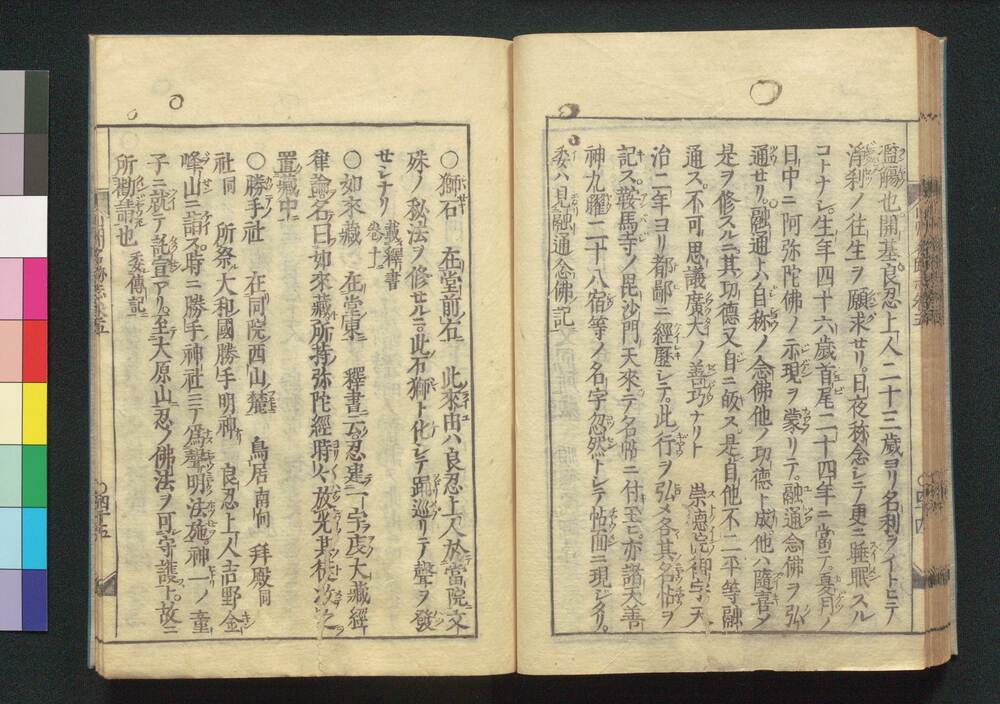 濫觴也開基良忍上人二十三歳ヨリ名利ヲイトヒテ
淨刹ノ往生ヲ願求セリ日夜称念シテ更ニ睡眠スル
コトナシ生年四十六歳首尾二十四年ニ當テ夏月ノ
日中ニ阿弥陀佛ノ示現ヲ蒙リテ融通念佛ヲ弘
通セリ融通ハ自称ノ念佛他ノ功德ト成他ハ隨喜メ
是ヲ修スルニ其功德又自ニ皈ス是自他不二平等融
通ス不可思議廣大ノ善巧ナリト 崇德院御宇天
治二年ヨリ都鄙ニ經歷シテ此行ヲ弘メ各其名帖ヲ
記ス鞍馬寺ノ毘沙門天來テ名帖ニ付玉ヒ亦諸天善
神九曜二十八宿等ノ名字忽然トシテ帖面ニ現シタリ
委ハ見融通念佛記
四十四
○獅石 在堂前右 此來由ハ良忍上人於當院文
殊ノ秘法ヲ修セルニ此石獅ト化シテ踊巡リテ聲ヲ發
セシナリ 載釋書卷十一
○如來藏 在堂東 釋書云忍建一宇庋大藏經
律論名曰如來藏所持弥陀經時々放光其徒
置藏中
○勝手社 在同院西山麓 鳥居南向 拜殿同
社同 所祭大和國勝手明神 良忍上人吉野金
峰山ニ詣ス時ニ勝手神社ニテ爲聲明法施神一ノ童
子ニ就テ託宣アリ至大原山忍ノ佛法ヲ可守護ト故ニ
所勸請也 委傳記
四十五